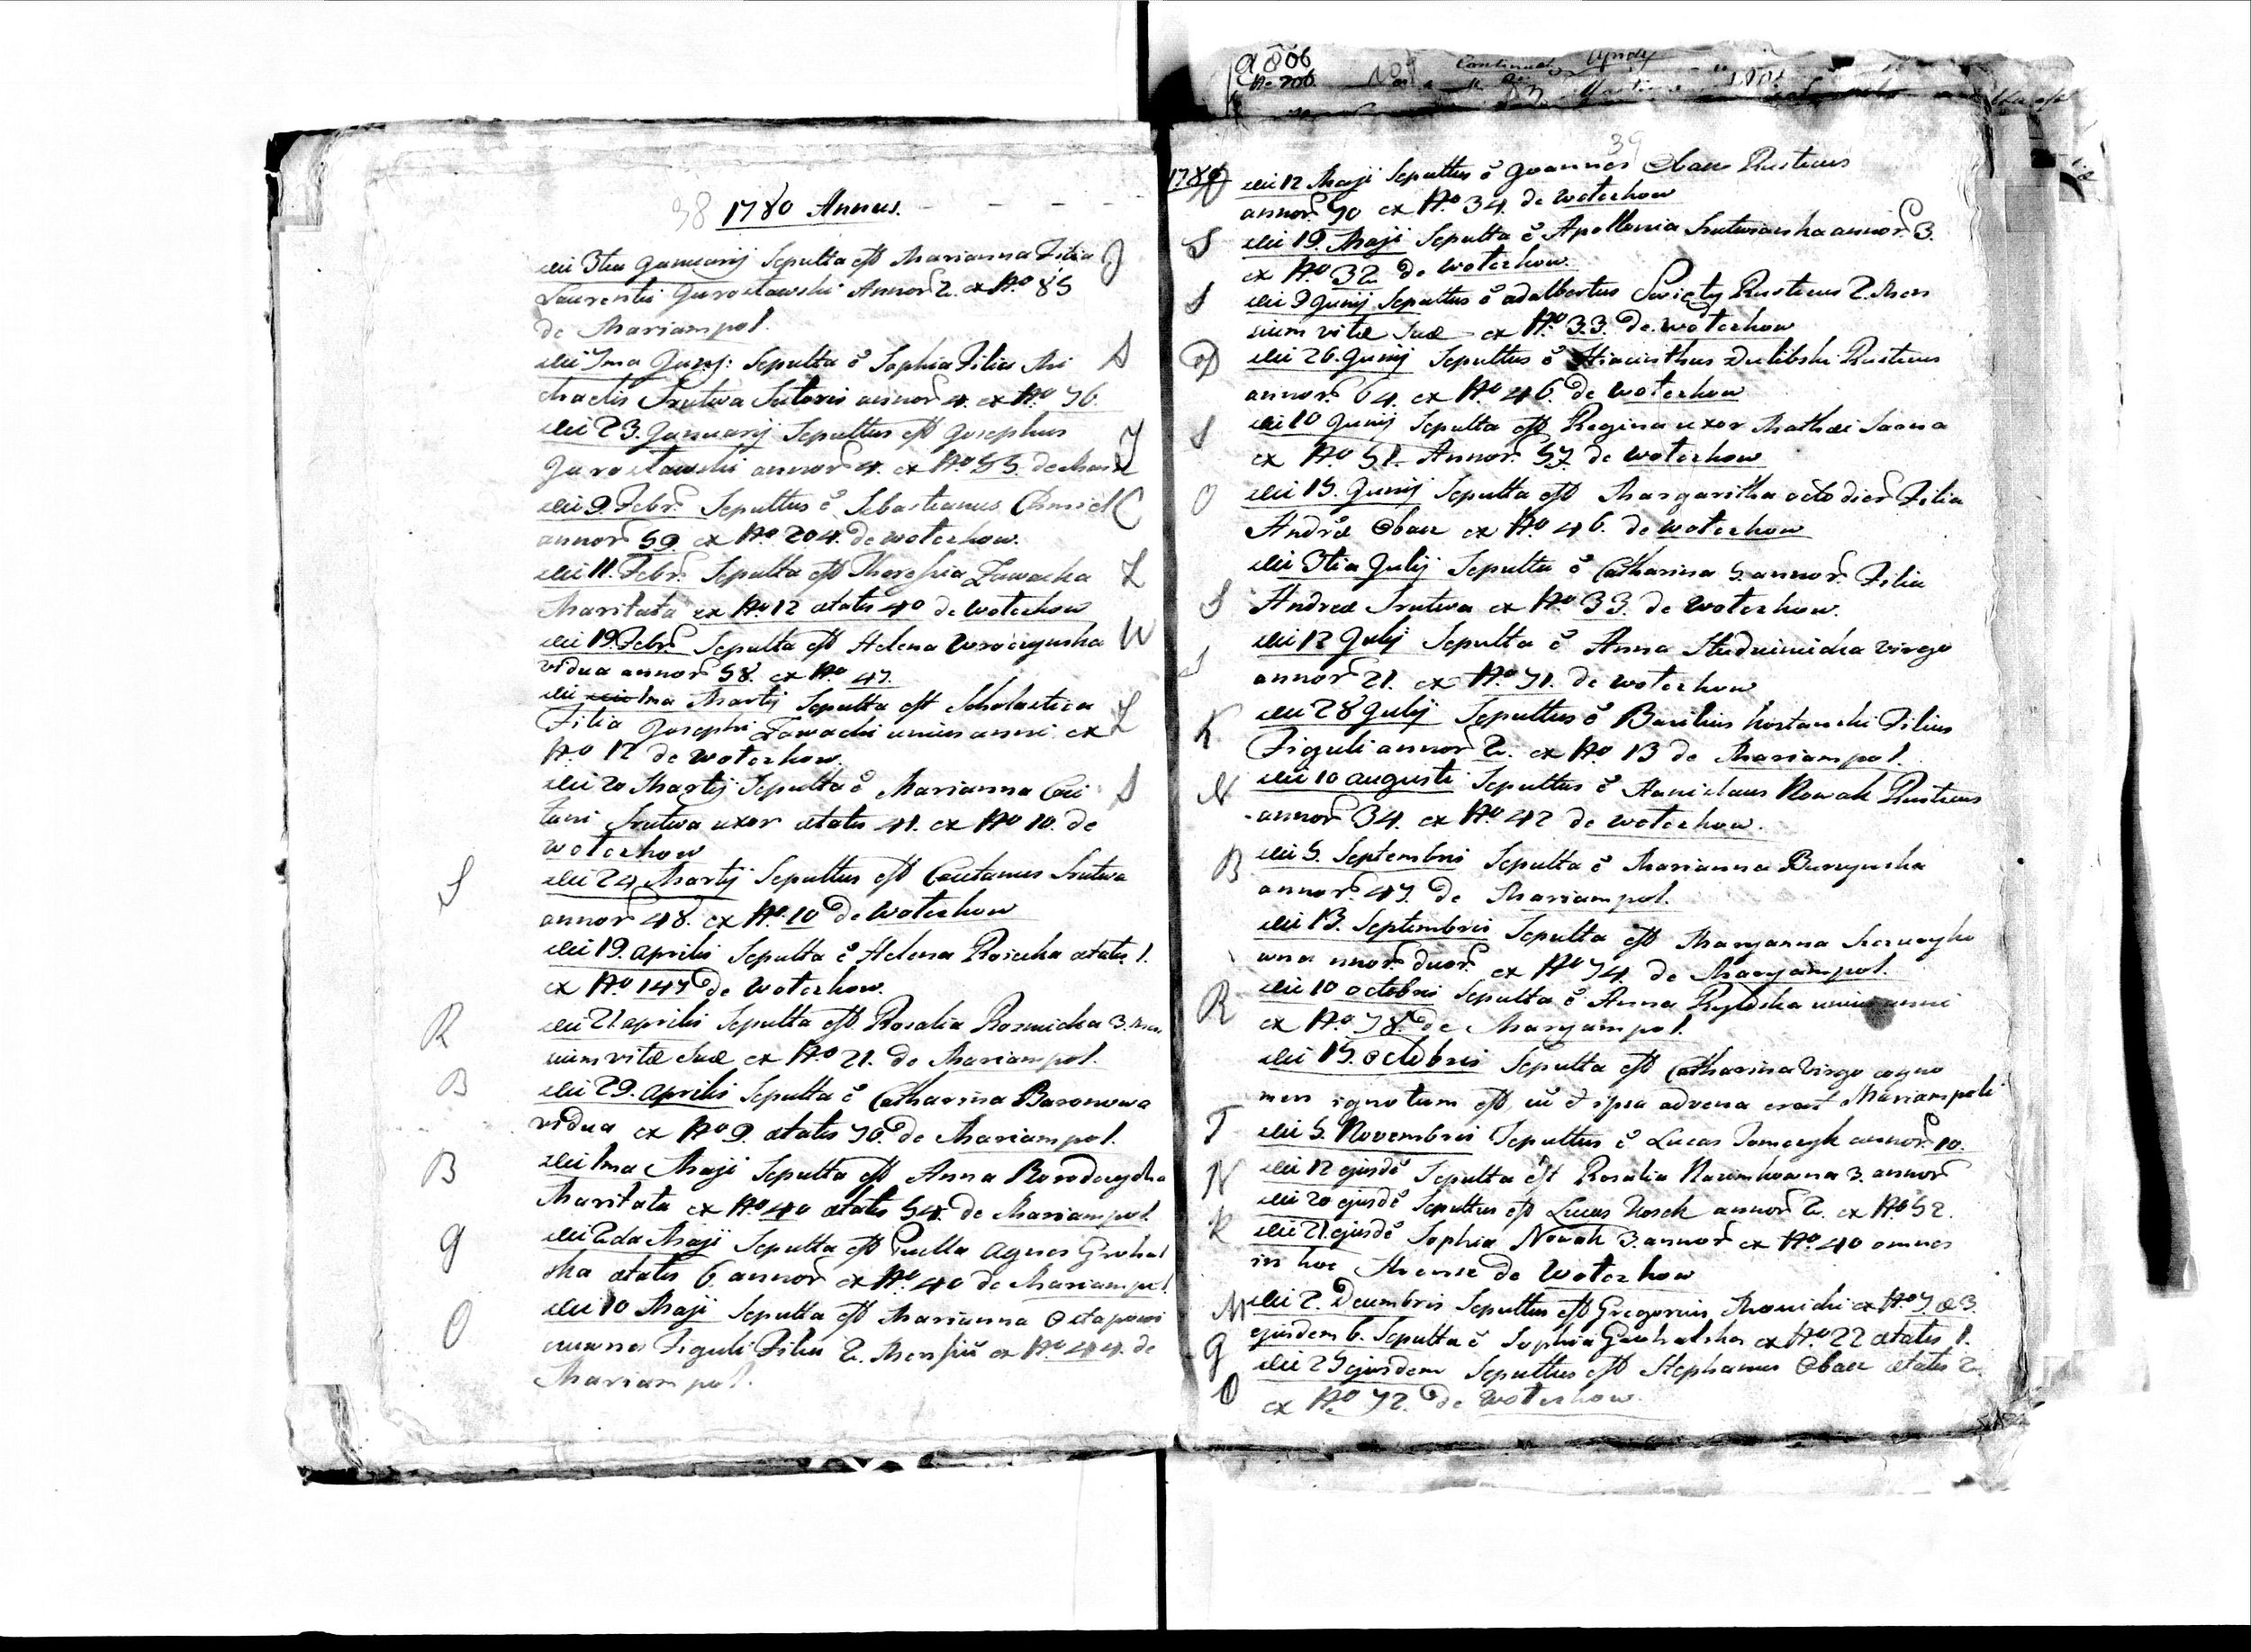 38 1780 Annus.
die 3tia Januarij Sepulta est Marianna Filia J
Laurentij Jarosławski Annor 2. ex No 85
de Mariampol.
die 7ma Janrij: Sepulta e Sophia Filia Mi S
chaelis Srutwa Sutoris annor 4. ex No 76.
die 23. Januarij Sepultus est Josephus J
Jarosławski annor 4. ex No 55. de Mari
die 9. Febr. Sepultus e Sebastianus Chmiel C
annor 59. ex No 204. de Wołczkow.
die 11. Febr. Sepulta est Theresia Zawacka Z
Maritata ex No 12 ætatis 40 de Wołczkow
die 19. Febr. Sepulta est Helena Wroczynska W
vidua annor 58. ex No 47.
die 1ma Martij Sepulta est Scholastica Z
Filia Josephi Zawacki unius anni ex
No 12 de Wołczkow.
die 20 Martij Sepulta e Marianna Cai S
tani Srutwa uxor ætatis 41. ex No 10. de
Wołczkow
S die 24 Martij Sepultus est Caietanus Srutwa
annor 48. ex No. 10 de Wołczkow
die 19. Aprilis Sepulta e Helena Rosicka ætatis 1.
ex No 147 de Wołczkow.
R die 21 aprilis Sepulta est Rosalia Rosnicka 3. Men
sium vitæ suæ ex No 21. de Mariampol.
B die 29. Aprilis Sepulta e Catharina Baronowa
vidua ex No 9. ætatis 70. de Mariampol.
B die 1ma Maji Sepulta est Anna Borodczycka
Maritata ex No 40 ætatis 54. de Mariampol.
G die 2da Maji Sepulta est Puella Agnes Grohal
ska ætatis 6. annor ex No 40 de Mariampol.
O die 10 Maji Sepulta est Marianna Ostapowi
czowna Figuli Filia 2. Mensiu ex No 44. de
Mariampol.
39
1780 O die 12 Maji Sepultus e Joannes Obacz Rusticus
annor. 50 ex No 34. de Wołczkow
S die 19. Maji Sepulta e Apollonia Srutwianka annor. 3.
ex No 32 de Wołczkow.
S die 9 Junij Sepultus e Adalbertus Swięty Rusticus 2. Men
sium vitæ suæ ex No 33. de Wołczkow
D die 26. Junij Sepultus e Hiacinthus Dulibski Rusticus
annor. 64. ex No 46. de Wołczkow
S die 10 Junij Sepulta est Regina uxor Mathæi
ex No 51. Annor. 57 de Wołczkow
O die 15. Junij Sepulta est Margaritha octo dier. Filia
Andræ Obacz ex No. 46. de Wołczkow
die 3tia Julij Sepulta e Catharina 5. annor. Filia
S Andreæ Srutwa ex No 33. de Wołczkow.
S die 12 Julij Sepulta e Anna Studnicnicka virgo
annor 21. ex No 71. de Wołczkow
K die 28 Julij Sepultus e Basilius Kostanski Filius
Figuli annor 2. ex No 13 de Mariampol.
N die 10 Augusti Sepultus e Stanislaus Nowak Rusticus
annor 34. ex No 42 de Wołczkow.
B die 5. Septembris Sepulta e Marianna Burzynska
annor. 47. de Mariampol.
die 13. Septembris Sepulta est Maryanna
wna annor. duor. ex No 74. de Maryampol.
R die 10 octobris Sepulta e Anna Rylska unius anni
ex No. 78. de Maryampol.
die 15. Octobris Sepulta est Catharina Virgo cogno
men ignotum est, cu et ipsa advena erat Mariampoli
T die 5. Novembris Sepultus e Lucas Tomczyk annor. 10.
N die 12 ejusde Sepulta est Rosalia Naumkowna 3. annor
die 20 ejusde Sepultus est Lucas Kosek annor 2. ex No 52.
K die 21. ejusde Sophia Nowak 3. annor ex No. 40 omnes
in hoc Mense de Wołczkow
M die 2. Decembris Sepultus est Gregorius Mowicki ex No 7. æ 3.
G ejusdem 6. Sepulta e Sophia Grohalska ex No 22 ætatis 1.
die 25 ejusdem Sepultus est Stephanus Obacz ætatis 2.
O ex No 72. de Wołczkow.